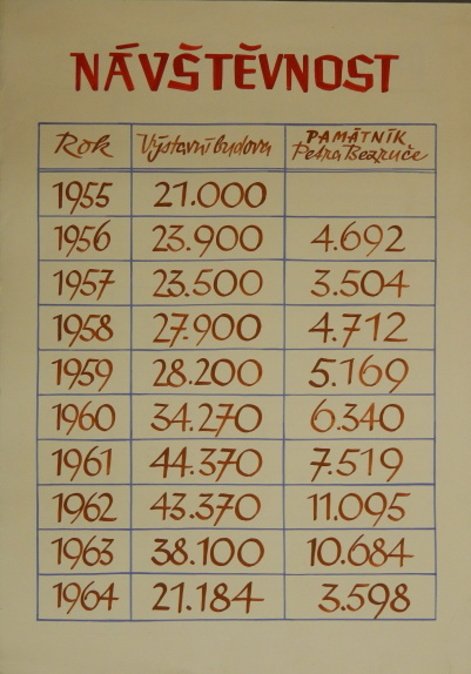 NÁVŠTĚVNOST
Rok Výstavní budova PAMÁTNÍK Petra Bezruče
1955 21.000
1956 23.900 4.692
1957 23.500 3.504
1958 27.900 4.712
1959 28.200 5.169
1960 34.270 6.340
1961 44.370 7.519
1962 43.370 11.095
1963 38.100 10.684
1964 21.184 3.598